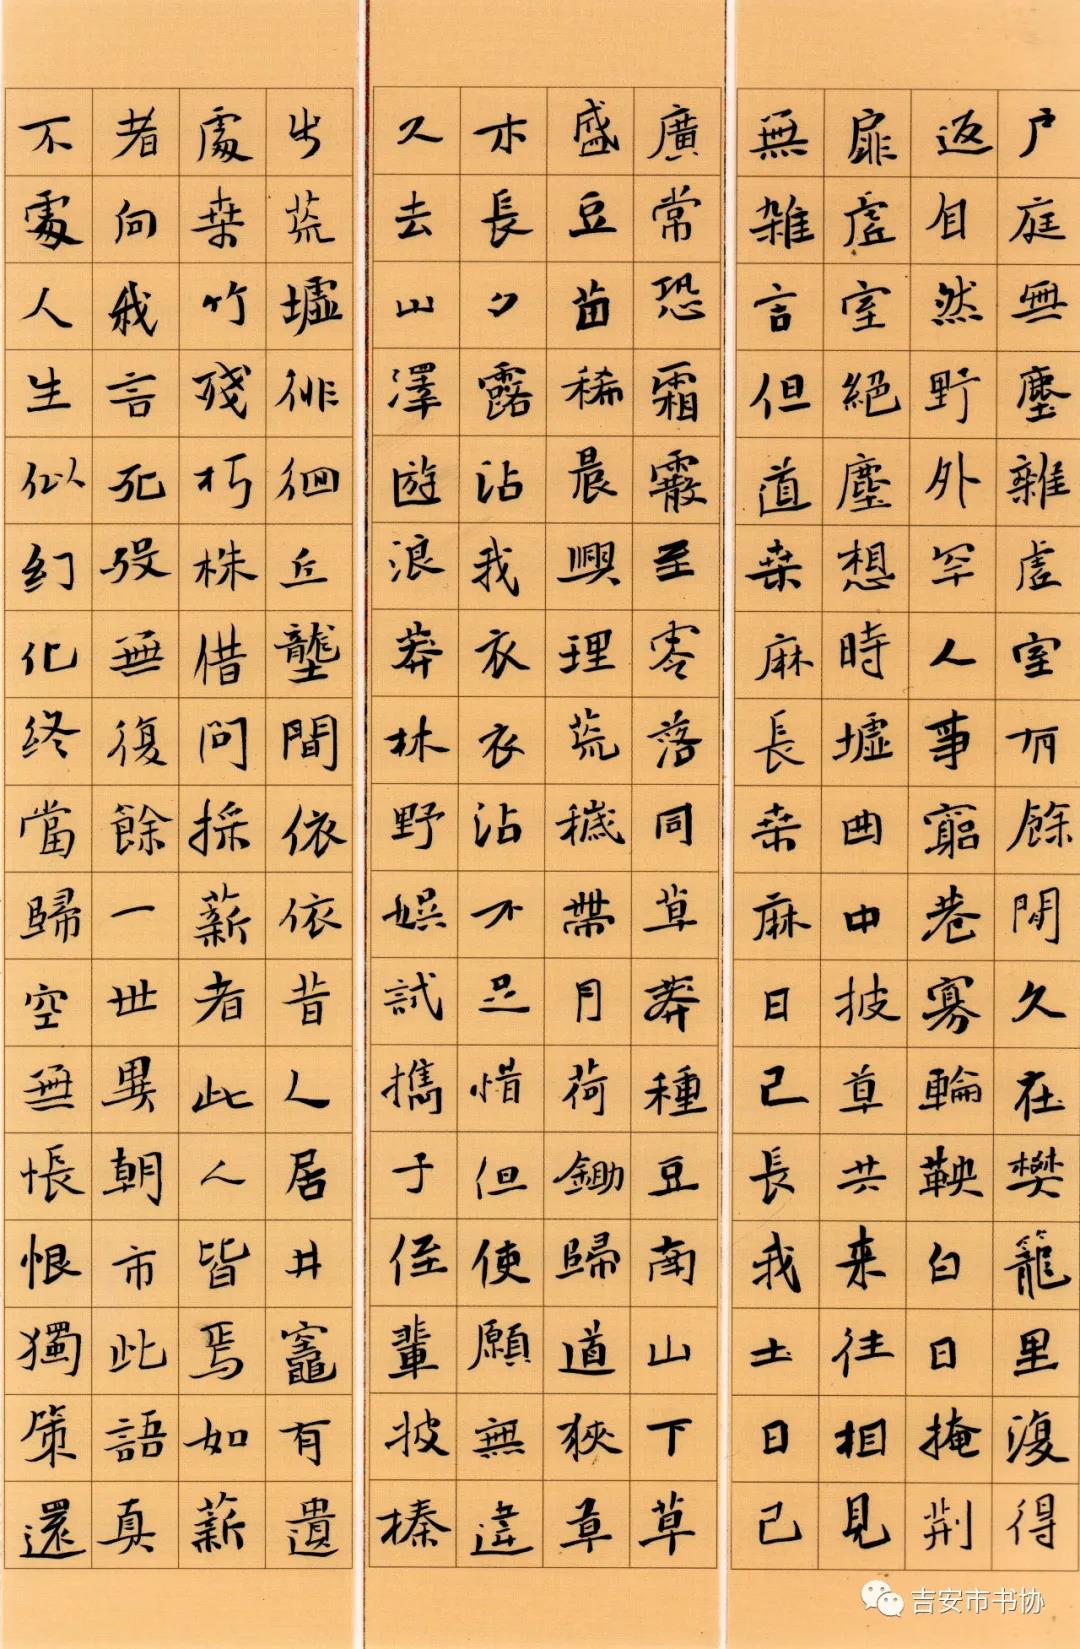 戶庭無塵雜虛室有餘閒久在樊籠里復得
返自然野外罕人事窮巷寡輪鞅白日掩荆
扉虛室絕塵想時墟曲中披草共来往相見
無雜言但道桒麻長桒麻日已長我土日已
廣常恐霜霰至零落同草莽種豆南山下草
盛豆苗稀晨興理荒穢帶月荷鋤歸道狹草
木長夕露沾我衣衣沾不足惜但使願無違
久去山澤遊浪莽林野娛試攜子侄輩披榛
步荒墟徘徊丘壟間依依昔人居井竈有遺
處桒竹殘朽株借問採薪者此人皆焉如薪
者向我言死歿無復餘一世異朝市此語真
不虛人生似幻化終當歸空無悵恨獨策還
吉安市书协